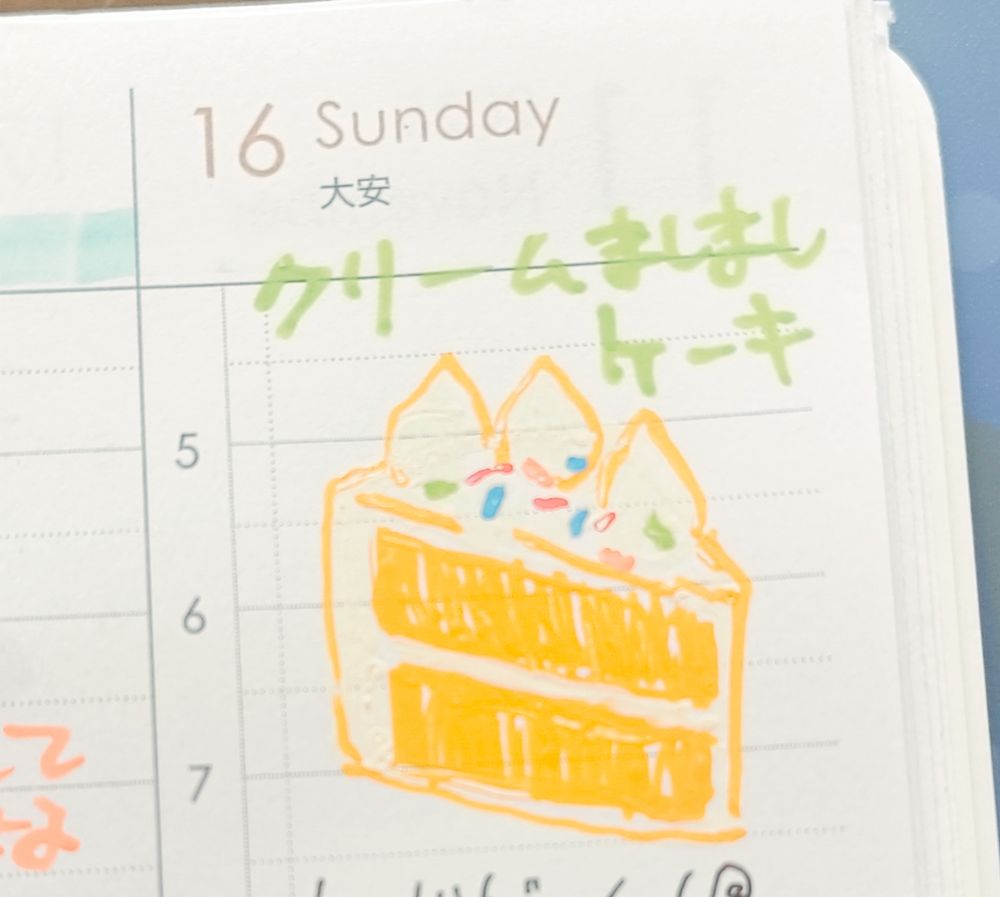 16 Sunday
大安
クリームましまし
ケーキ
5
6
7